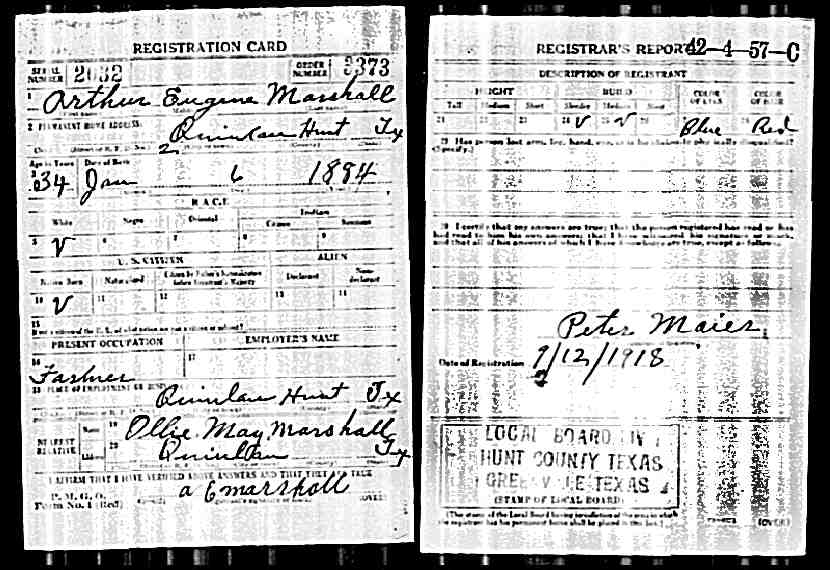 REGISTRATION CARD
SERIAL NUMBER 2032 ORDER NUMBER 3373
1 Arthur Eugene Marshall
2 PERMANENT HOME ADDRESS:
Quinlan Hunt Tx
Age in Years Date of Birth
34 Jan 6 1884
RACE
White Negro Oriental Indian
Citizen Noncitizen
5 V 6 7 8 9
U. S. CITIZEN ALIEN
Native Born Naturalized Citizen by Father's Naturalization Before Registrant's Majority Declarant Non-declarant
10 V 11 12 13 14
15
If not a citizen of the U. S., of what nation are you a citizen or subject?
PRESENT OCCUPATION EMPLOYER'S NAME
16 17
Farmer
18 PLACE OF EMPLOYMENT OR BUSINESS
Quinlan Hunt Tx
NEAREST RELATIVE Name 19 Ollie May Marshall
Address 20 Quinlan Tx
I AFFIRM THAT I HAVE VERIFIED ABOVE ANSWERS AND THAT THEY ARE TRUE
P. M. G. O.
Form No. 1 (Red) a E marshall (OVER)
REGISTRAR'S REPORT 42-4-57-C
DESCRIPTION OF REGISTRANT
HEIGHT BUILD COLOR OF EYES COLOR OF HAIR
Tall Medium Short Slender Medium Stout
21 22 23 24 V 25 V 26 Blue 28 Red
29 Has person lost arm, leg, hand, eye, or is he obviously physically disqualified?
(Specify.)
30 I certify that my answers are true; that the person registered has read or has
had read to him his own answers; that I have witnessed his signature or mark,
and that all of his answers of which I have knowledge are true, except as follows:
Peter Maier
Date of Registration 9/12/1918
LOCAL BOARD DIV 1
HUNT COUNTY TEXAS
GREENVILLE TEXAS
(STAMP OF LOCAL BOARD)
(The stamp of the Local Board having jurisdiction of the area in which
the registrant has his permanent home shall be placed in this box.)
(OVER)